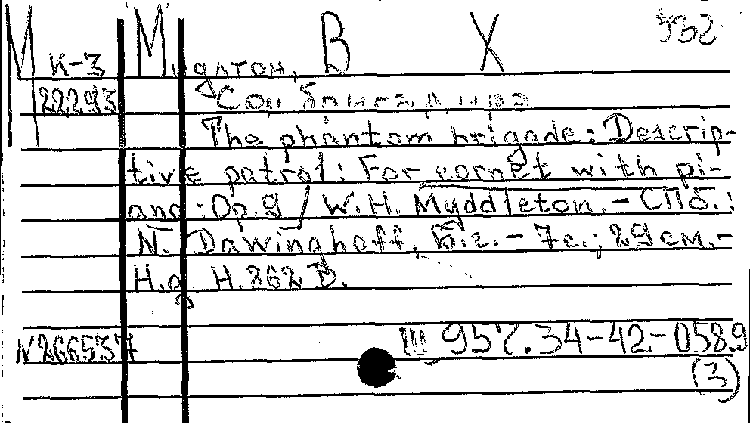 М В Х 932
К-3 Мидлтон,
22293 Соч. Бригадира
The phantom brigade: Descrip-
tive patrol: For cornet with pi-
ano: Op. 9 / W.H. Myddleton. - СПб.:
N. Dawinghoff, б.г. - 7 с.; 29 см. -
Н.д. Н. 262 D.
N266537 Ш 957.34-42-0589
(3)